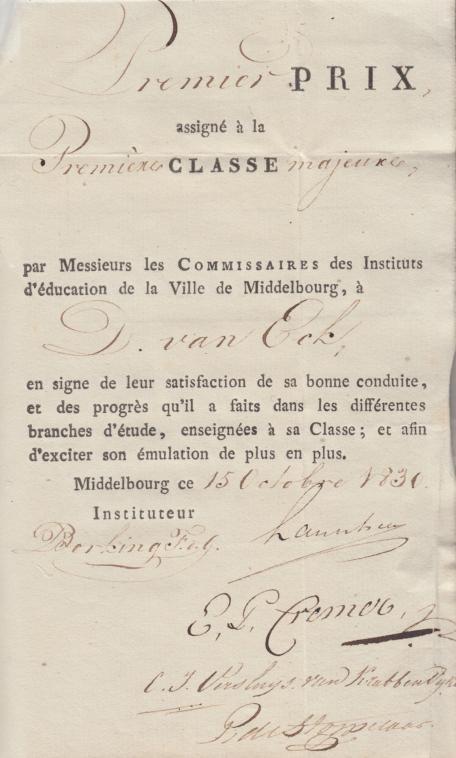 Premier PRIX,
assigné à la
Première CLASSE majeure,
par Messieurs les COMMISSAIRES des Instituts
d'éducation de la Ville de Middelbourg, à
D. van Eck,
en signe de leur satisfaction de sa bonne conduite,
et des progrès qu'il a faits dans les différentes
branches d'étude, enseignées à sa Classe; et afin
d'exciter son émulation de plus en plus.
Middelbourg ce 15 Octobre 1830.
Instituteur
E. P. Cremer,
C. J. Versluys. van Krabben
P. de